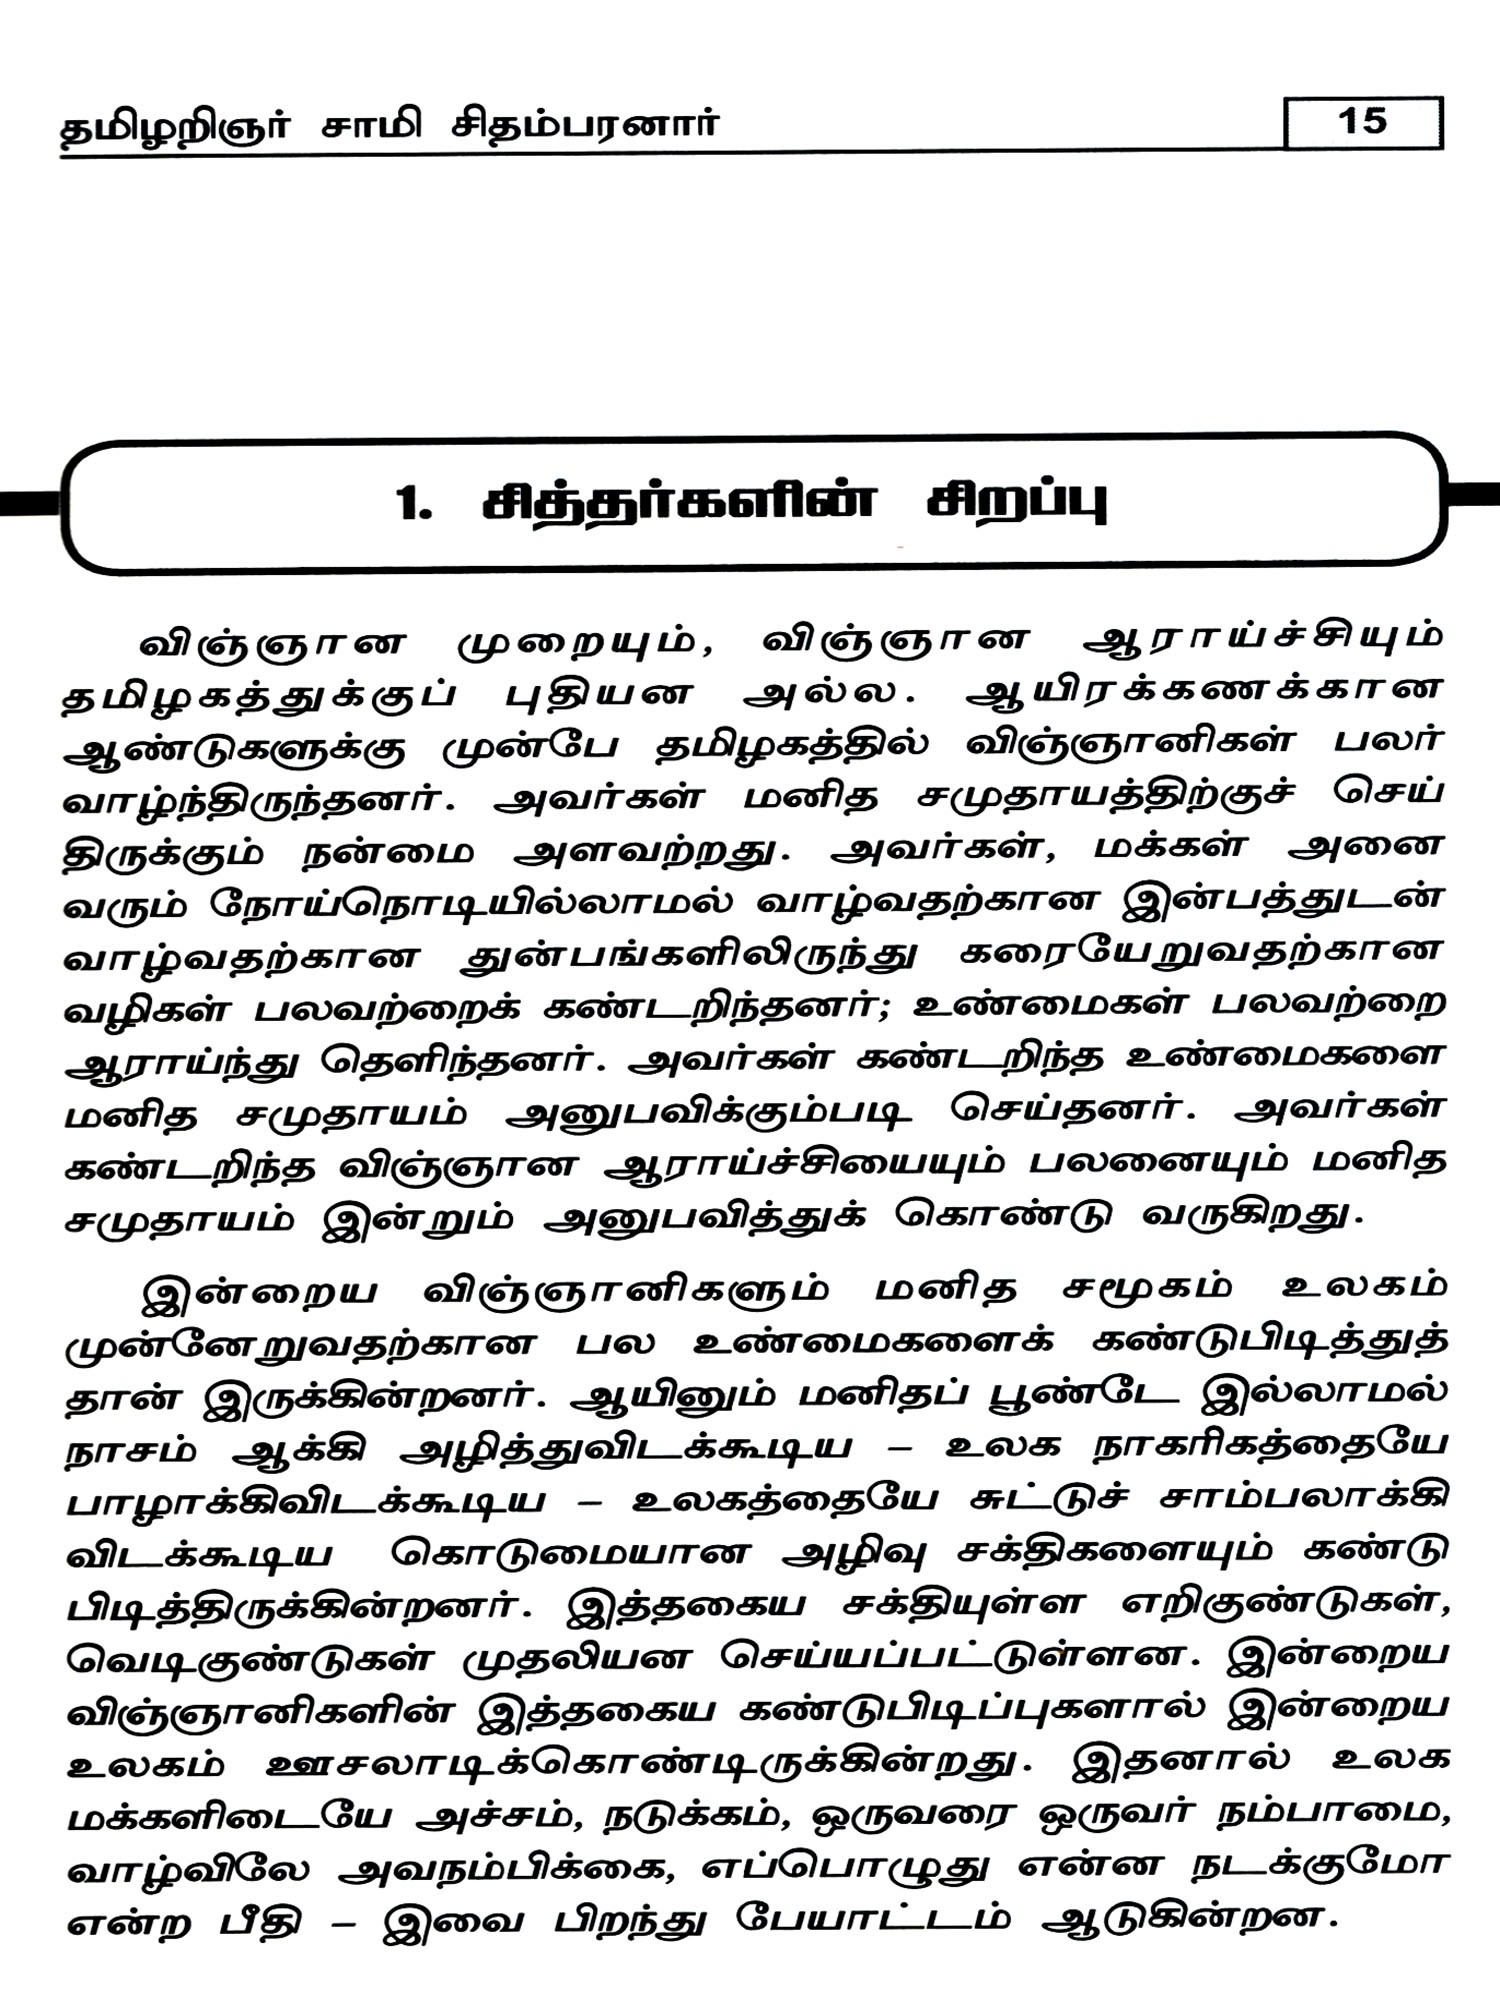 தமிழறிஞர் சாமி சிதம்பரனார்
15
1. சித்தர்களின் சிறப்பு
விஞ்ஞான முறையும், விஞ்ஞான ஆராய்ச்சியும்
தமிழகத்துக்குப் புதியன அல்ல. ஆயிரக்கணக்கான
ஆண்டுகளுக்கு முன்பே தமிழகத்தில் விஞ்ஞானிகள் பலர்
வாழ்ந்திருந்தனர். அவர்கள் மனித சமுதாயத்திற்குச் செய்
திருக்கும் நன்மை அளவற்றது. அவர்கள், மக்கள் அனை
வரும் நோய்நொடியில்லாமல் வாழ்வதற்கான இன்பத்துடன்
வாழ்வதற்கான துன்பங்களிலிருந்து கரையேறுவதற்கான
வழிகள் பலவற்றைக் கண்டறிந்தனர்; உண்மைகள் பலவற்றை
ஆராய்ந்து தெளிந்தனர். அவர்கள் கண்டறிந்த உண்மைகளை
மனித சமுதாயம் அனுபவிக்கும்படி செய்தனர். அவர்கள்
கண்டறிந்த விஞ்ஞான ஆராய்ச்சியையும் பலனையும் மனித
சமுதாயம் இன்றும் அனுபவித்துக் கொண்டு வருகிறது.
இன்றைய விஞ்ஞானிகளும் மனித சமூகம் உலகம்
முன்னேறுவதற்கான பல உண்மைகளைக் கண்டுபிடித்துத்
தான் இருக்கின்றனர். ஆயினும் மனிதப் பூண்டே இல்லாமல்
நாசம் ஆக்கி அழித்துவிடக்கூடிய – உலக நாகரிகத்தையே
பாழாக்கிவிடக்கூடிய – உலகத்தையே சுட்டுச் சாம்பலாக்கி
விடக்கூடிய கொடுமையான அழிவு சக்திகளையும் கண்டு
பிடித்திருக்கின்றனர். இத்தகைய சக்தியுள்ள எறிகுண்டுகள்,
வெடிகுண்டுகள் முதலியன செய்யப்பட்டுள்ளன. இன்றைய
விஞ்ஞானிகளின் இத்தகைய கண்டுபிடிப்புகளால் இன்றைய
உலகம் ஊசலாடிக்கொண்டிருக்கின்றது. இதனால் உலக
மக்களிடையே அச்சம், நடுக்கம், ஒருவரை ஒருவர் நம்பாமை,
வாழ்விலே அவநம்பிக்கை, எப்பொழுது என்ன நடக்குமோ
என்ற பீதி – இவை பிறந்து பேயாட்டம் ஆடுகின்றன.